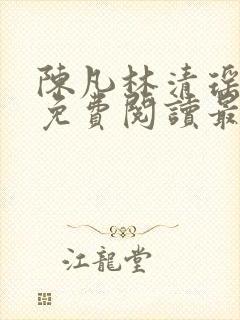 陳凡林清瑤
免費閱讀最
江龍堂